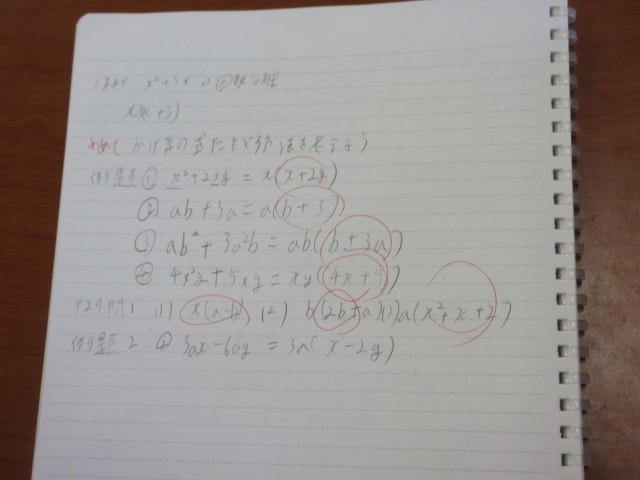 x²+3x の因数分解
x(x+3)
めあて かけ算の式にもどす方法を考えよう
例題 ① x²+2xy = x(x+2y)
② ab+3a = a(b+3)
③ ab²+3a²b = ab(b+3a)
④ 4x²y+5xy = xy(4x+5)
P29問1 (1) x(a-b) (2) b(2b+a) (3) a(x²+x+2)
例題 2 ① 3ax-6ay = 3a(x-2y)